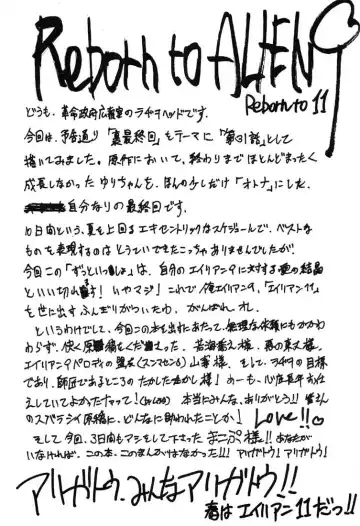 Reborn to ALIEN9
Reborn to 11
どうも、革命政府広報室のラヂヲヘッドです。
今回は、予告通り「裏最終回」をテーマに「第31話」として
描いてみました。原作において、終わりまでほとんどまったく
成長しなかったゆりちゃんを、ほんの少しだけ「オトナ」にした、
自分なりの最終回です。
10日間という、夏を上回るエキセントリックなスケジュールで、ベストな
ものを表現するのはとうていできたこっちゃありませんでしたが
今回この「ずっといっしょ」は、自分のエイリアン9に対する愛の結晶
といい切れます!いやマジ!これで俺エイリアン9、「エイリアン11」
を世に出すふんぎりがついたわ、がんばれ、オレ。
というわけでして、今回この本を出すにあたって、無理な依頼にもかかわ
わらず、快く原稿をくださった、若海蒼え様、春の 様、
エイリアン9パロディの盟友(スンマセン)山峯様、そして、ラヂヲの目標
であり、師匠であるところのたかしたたかし様!あーも、心臓長年 
えしていてよかったナァって!本当にみんな、ありがとう!!皆さん
のスバラシイ原稿に、どんなに助けられたことか!Love!!♡
そして今回、3日間もアシをして下さったまこぷ様!!あなたが
いなければ、この本、このまんがはなかった!!!アリガトウ!アリガトウ!
アリガトウ、みんなアリガトウ!!
春はエイリアン11だっ!!